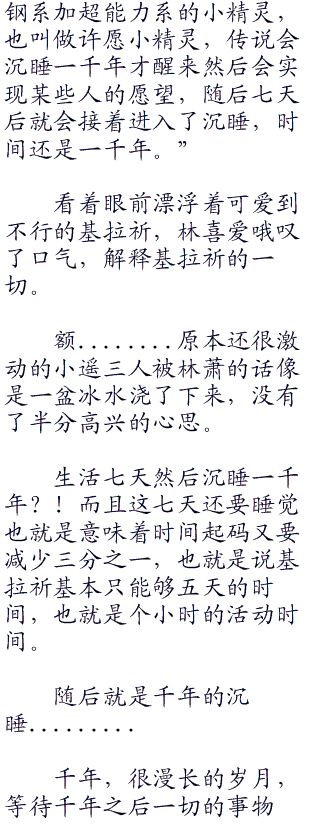 钢系加超能力系的小精灵，
也叫做许愿小精灵，传说会
沉睡一千年才醒来然后会实
现某些人的愿望，随后七天
后就会接着进入了沉睡，时
间还是一千年。”
看着眼前漂浮着可爱到
不行的基拉祈，林喜爱哦叹
了口气，解释基拉祈的一
切。
额........原本还很激
动的小遥三人被林萧的话像
是一盆冰水浇了下来，没有
了半分高兴的心思。
生活七天然后沉睡一千
年？！而且这七天还要睡觉
也就是意味着时间起码又要
减少三分之一，也就是说基
拉祈基本只能够五天的时
间，也就是个小时的活动时
间。
随后就是千年的沉
睡.........
千年，很漫长的岁月，
等待千年之后一切的事物